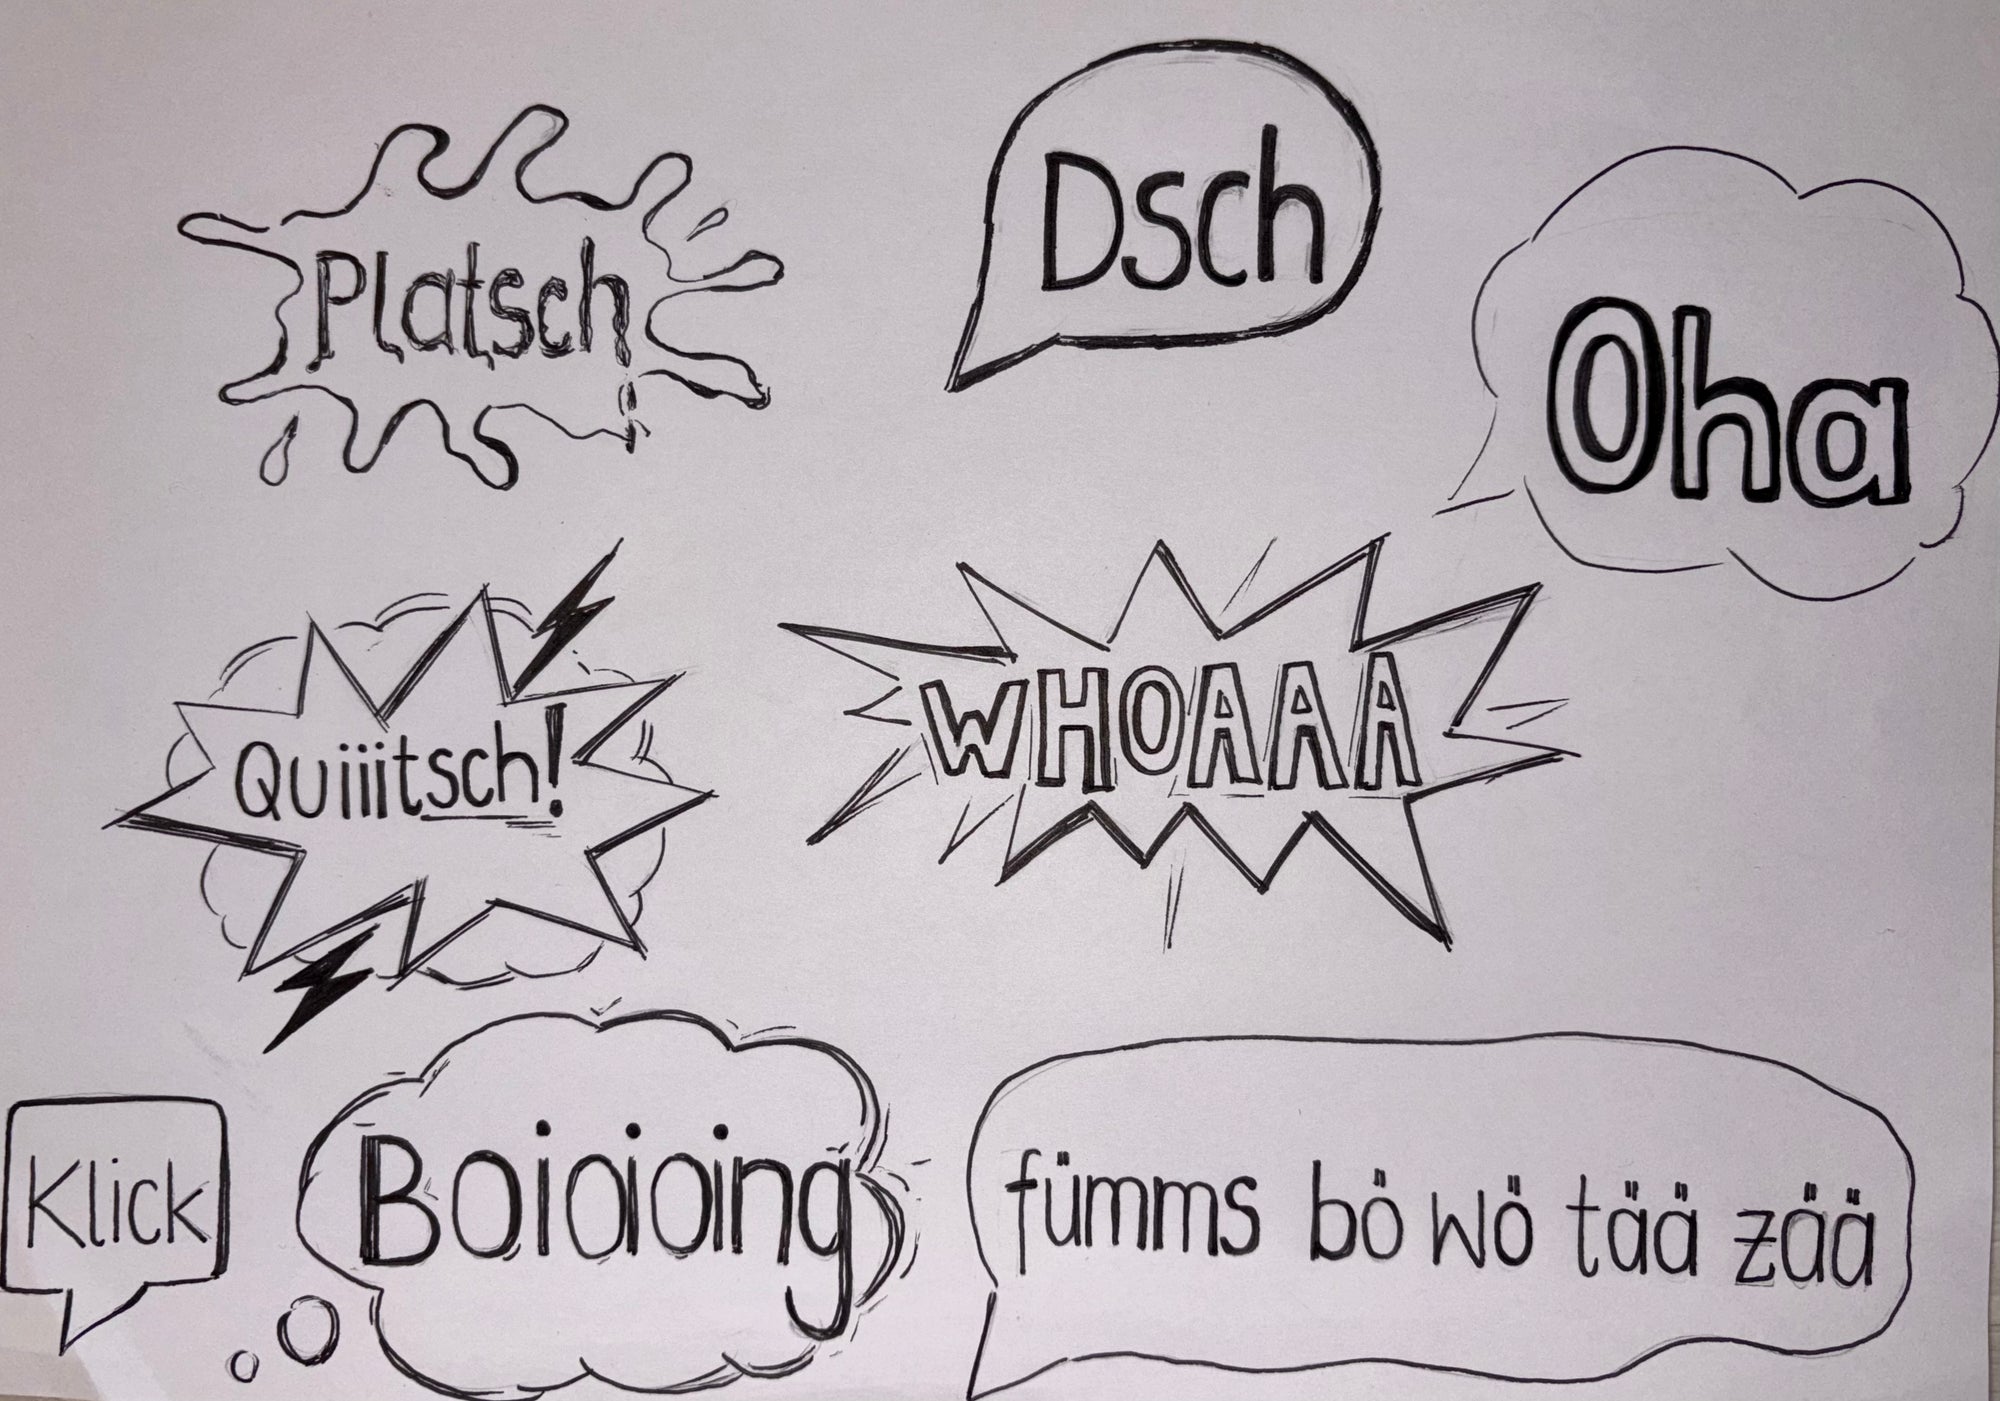 Platsch
Dsch
Oha
Quiiitsch!
WHOAAA
Klick
Boioioing
fümms bö wö tää zää